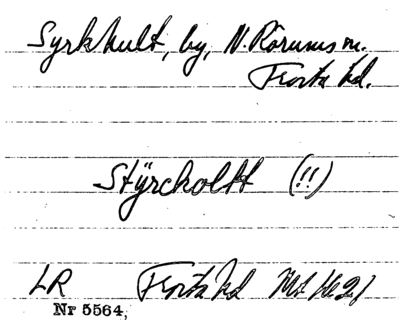 Syrkhult, by, N. Rörums sn.
Frosta hd.
Stÿrckoltt (!!)
LR Frosta hd
Nr 5564,